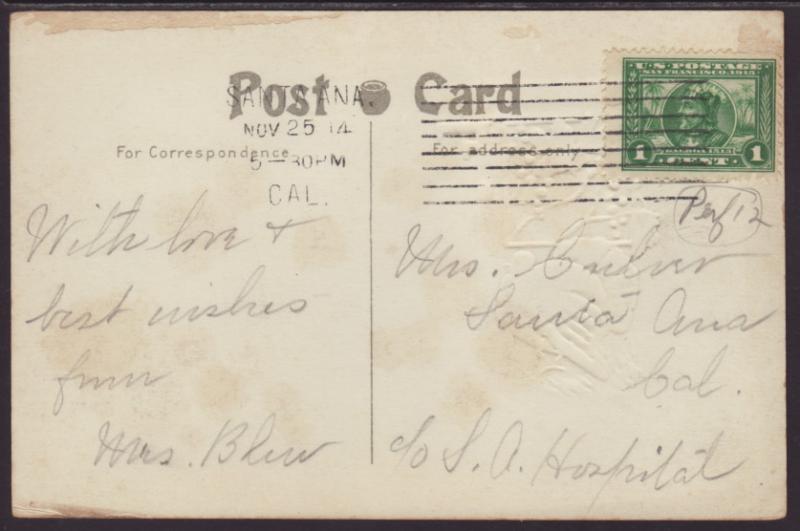 Post Card
SANTA ANA.
NOV 25 14
5-30PM
CAL.
For Correspondence
For address only
U.S. POSTAGE
SAN FRANCISCO, 1915
BALBOA 1513
1 CENT 1
Perf 12
With love &
best wishes
from
Mrs. Blew
Mrs. Culver
Santa Ana
Cal.
c/o S. A. Hospital